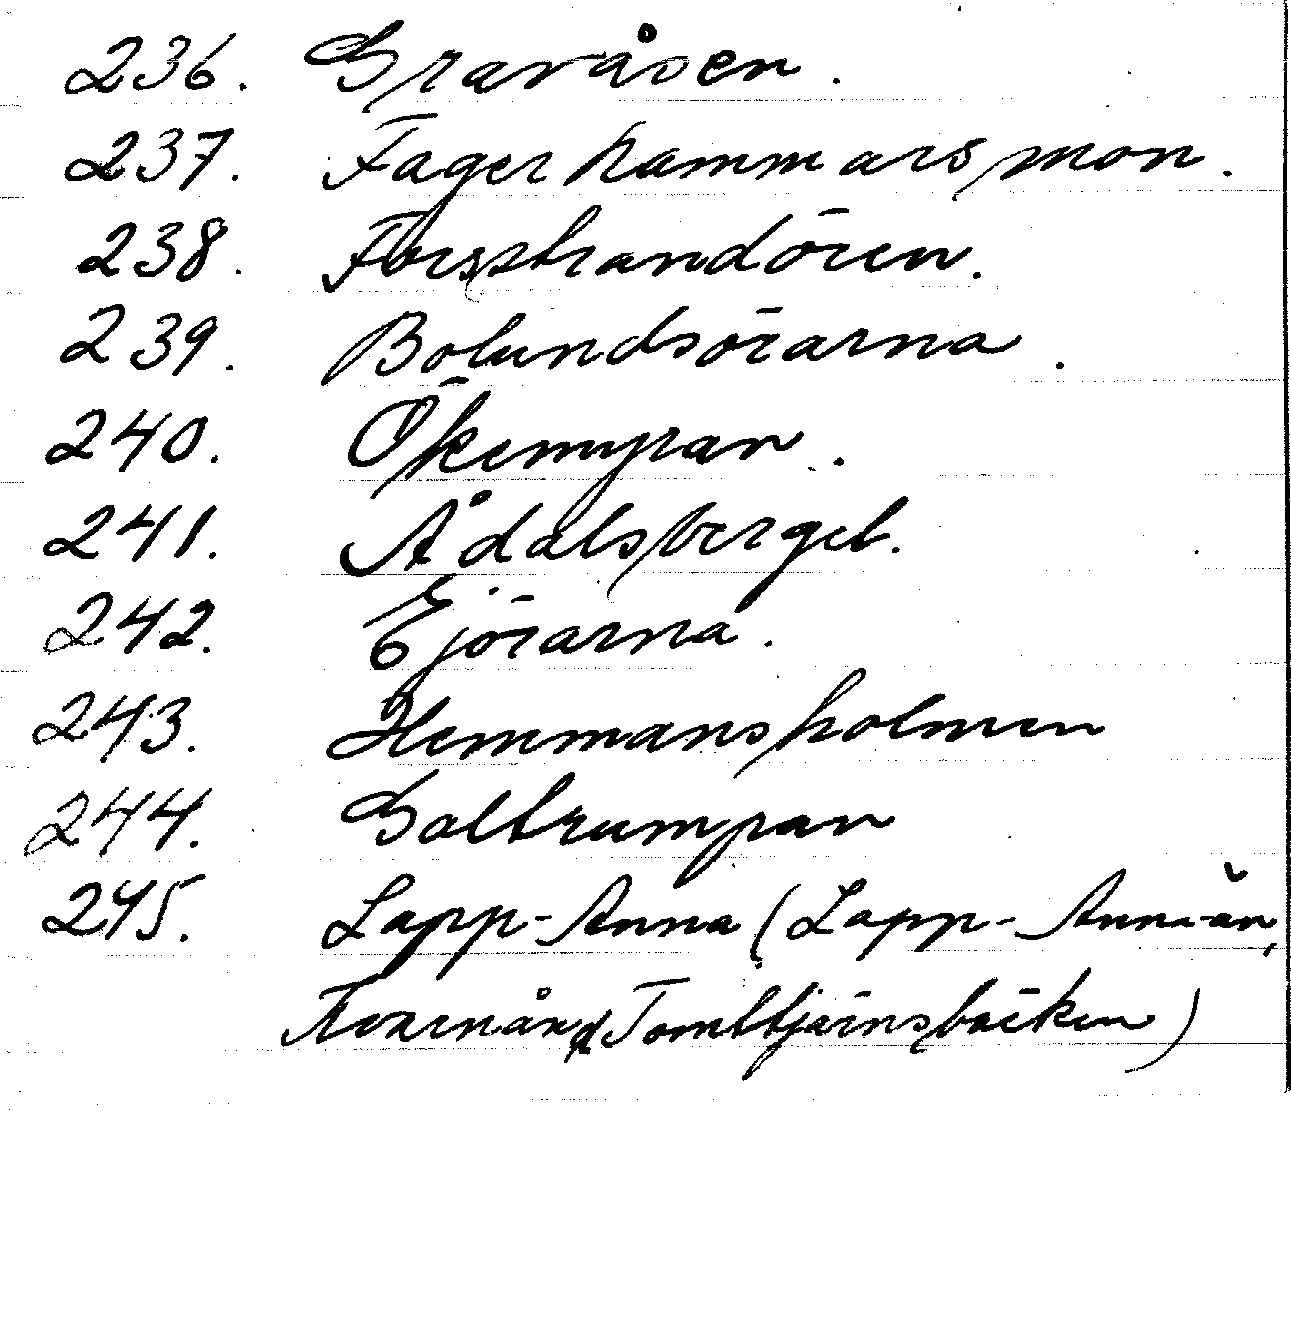 236. Gravåsen.
237. Fagerhammarsmon.
238. Forsstrandören.
239. Bolundsörarna.
240. Ökermyran.
241. Ådalsberget.
242. Ejörarna.
243. Hemmansholmen
244. Galtrumpan
245. Lapp-Anna (Lapp-Anna-ån,
Kvarnån, Tomttjärnsbäcken)